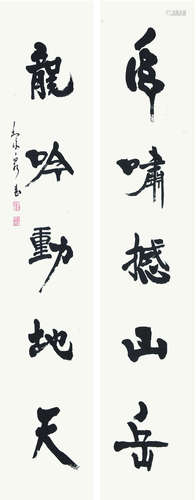 虎啸撼山岳
龍吟動地天